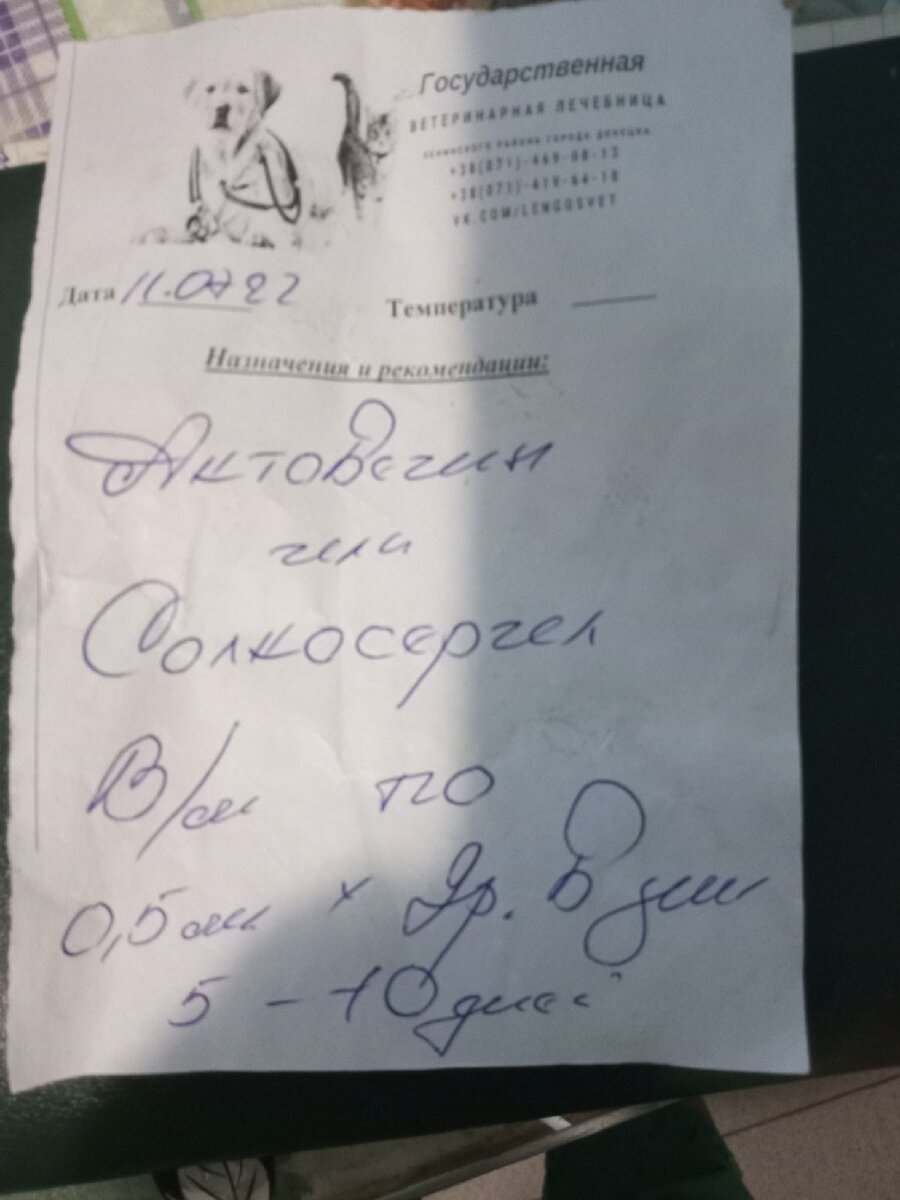 Государственная
ВЕТЕРИНАРНАЯ ЛЕЧЕБНИЦА
ЛЕНИНСКОГО РАЙОНА ГОРОДА ДОНЕЦКА
+38(071)-469-08-13
+38(071)-419-64-18
VK.COM/LENGOSVET
Дата 11.07 22 Температура
Назначения и рекомендации:
Актовегин
или
Солкосергел
В/м по
0,5 мл х 2р. в день
5 - 10 дней